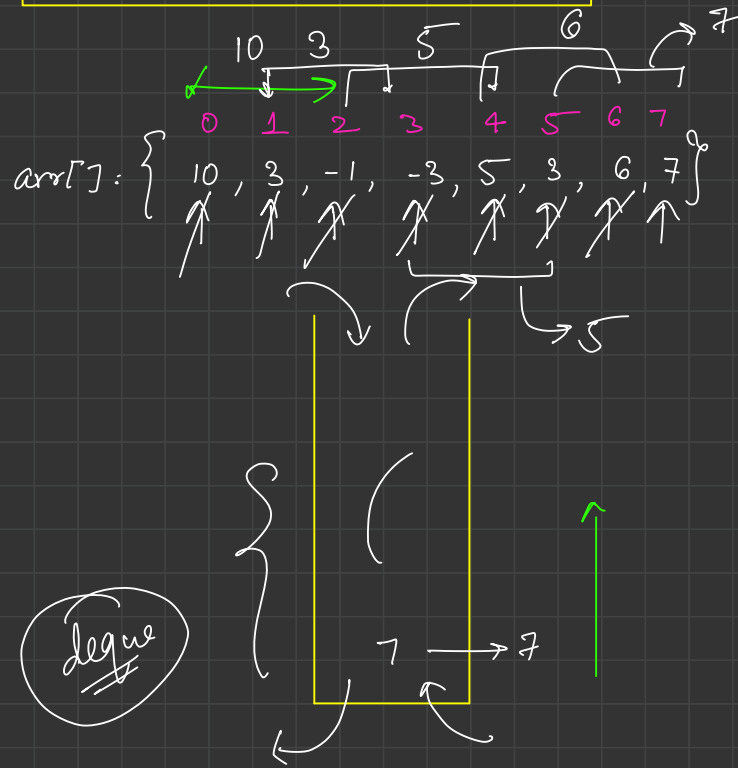 10 3 5 6 7
0 1 2 3 4 5 6 7
arr[] : { 10 , 3 , -1 , -3 , 5 , 3 , 6 , 7 }
5
7 → 7
deque